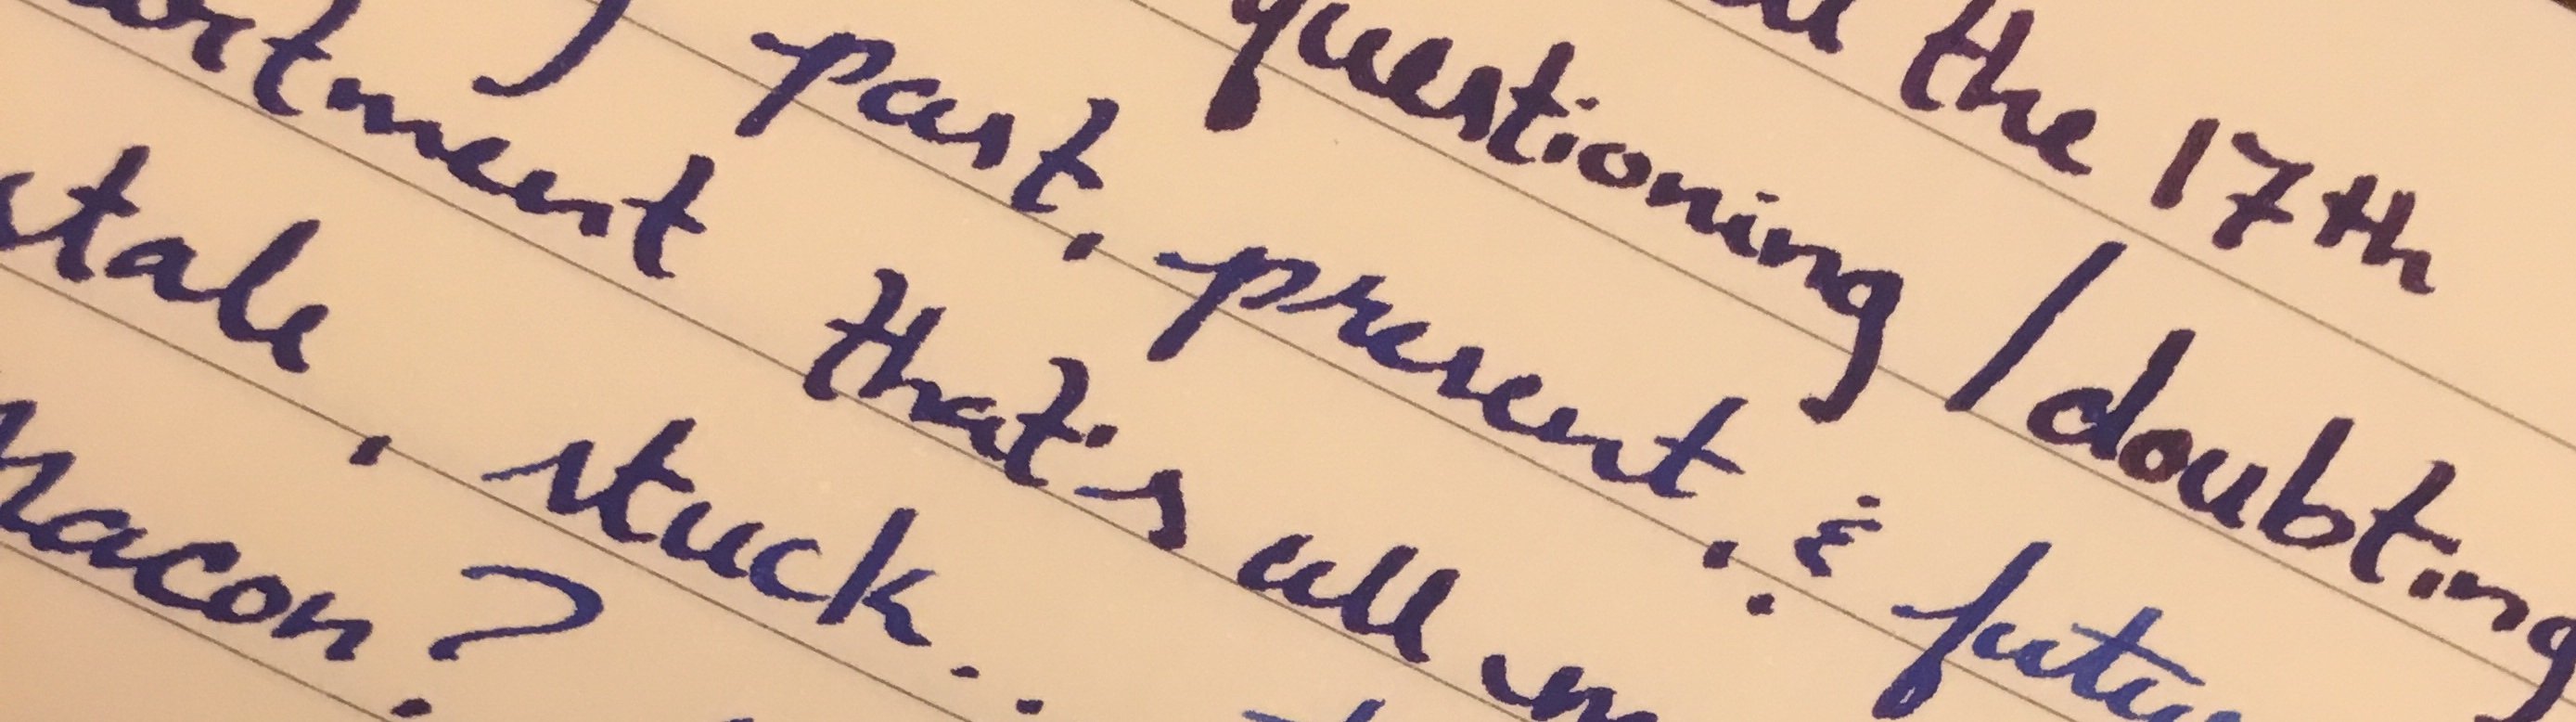 the 17th
questioning / doubting
past, present, & futu
tment that's all
stale, stuck..
macon?